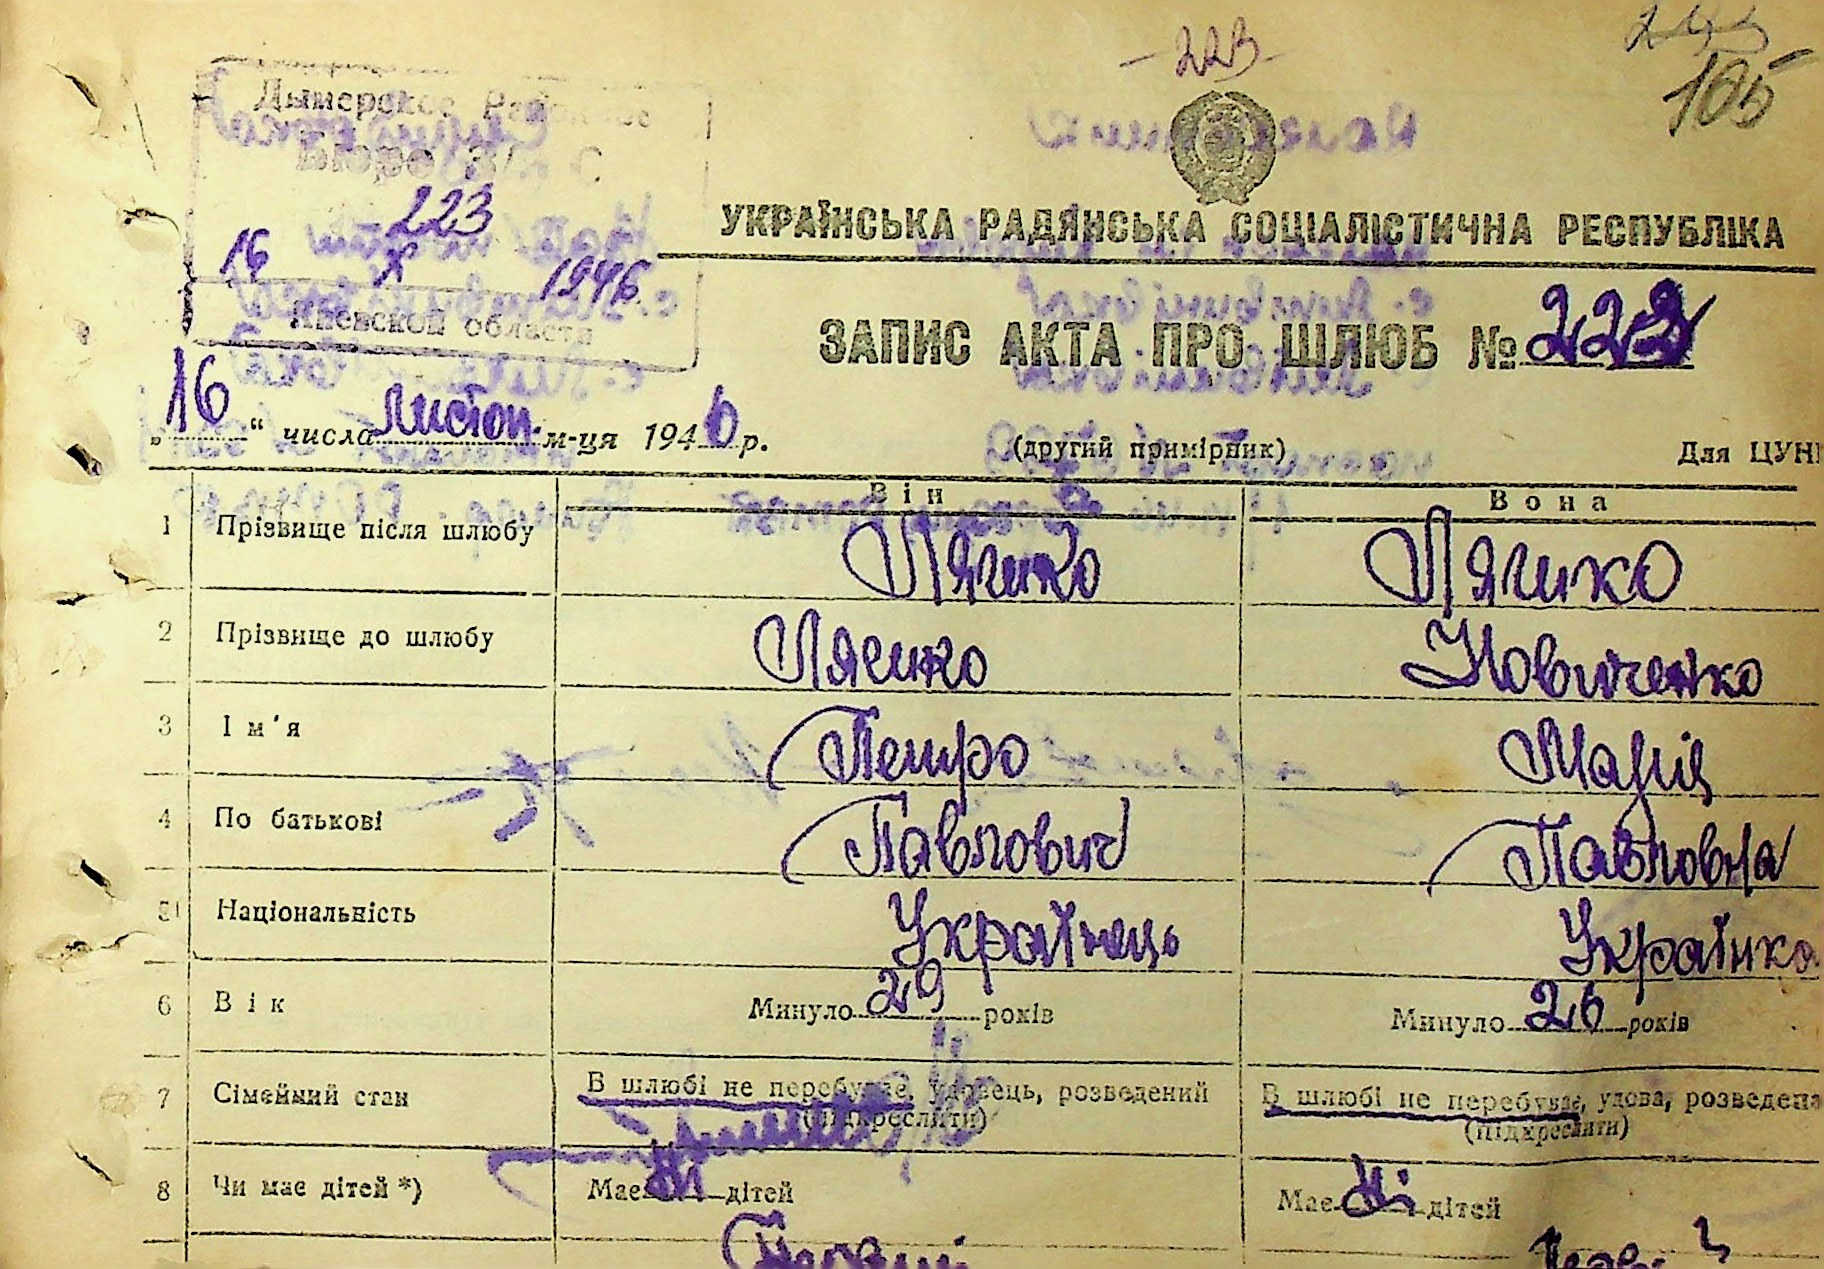 - 223 -
105
Дымерское Районное
Бюро ЗАГС
223
16 X 1946
Киевской области
УКРАЇНСЬКА РАДЯНСЬКА СОЦІАЛІСТИЧНА РЕСПУБЛІКА
ЗАПИС АКТА ПРО ШЛЮБ № 223
„16“ числа листоп. м-ця 1946 р.
(другий примірник)
Для ЦУН
Він Вона
1 Прізвище після шлюбу Лячко Лячко
2 Прізвище до шлюбу Лячко Новиченко
3 Ім'я Петро Марія
4 По батькові Павлович Павловна
5 Національність Українець Українка
6 Вік Минуло 29 років Минуло 26 років
7 Сімейний стан В шлюбі не перебуває, удовець, розведений В шлюбі не перебуває, удова, розведена
(підкреслити) (підкреслити)
8 Чи має дітей *) Має ні дітей Має ні дітей